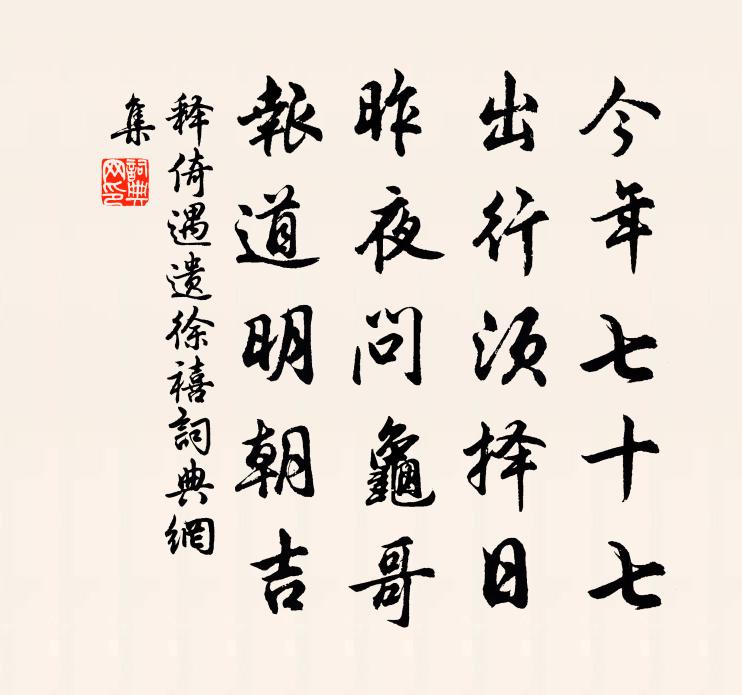 今年七十七
出行须择日
昨夜问龜哥
報道明朝吉
释倚遇遗徐禧詞典網
集
詞典網印